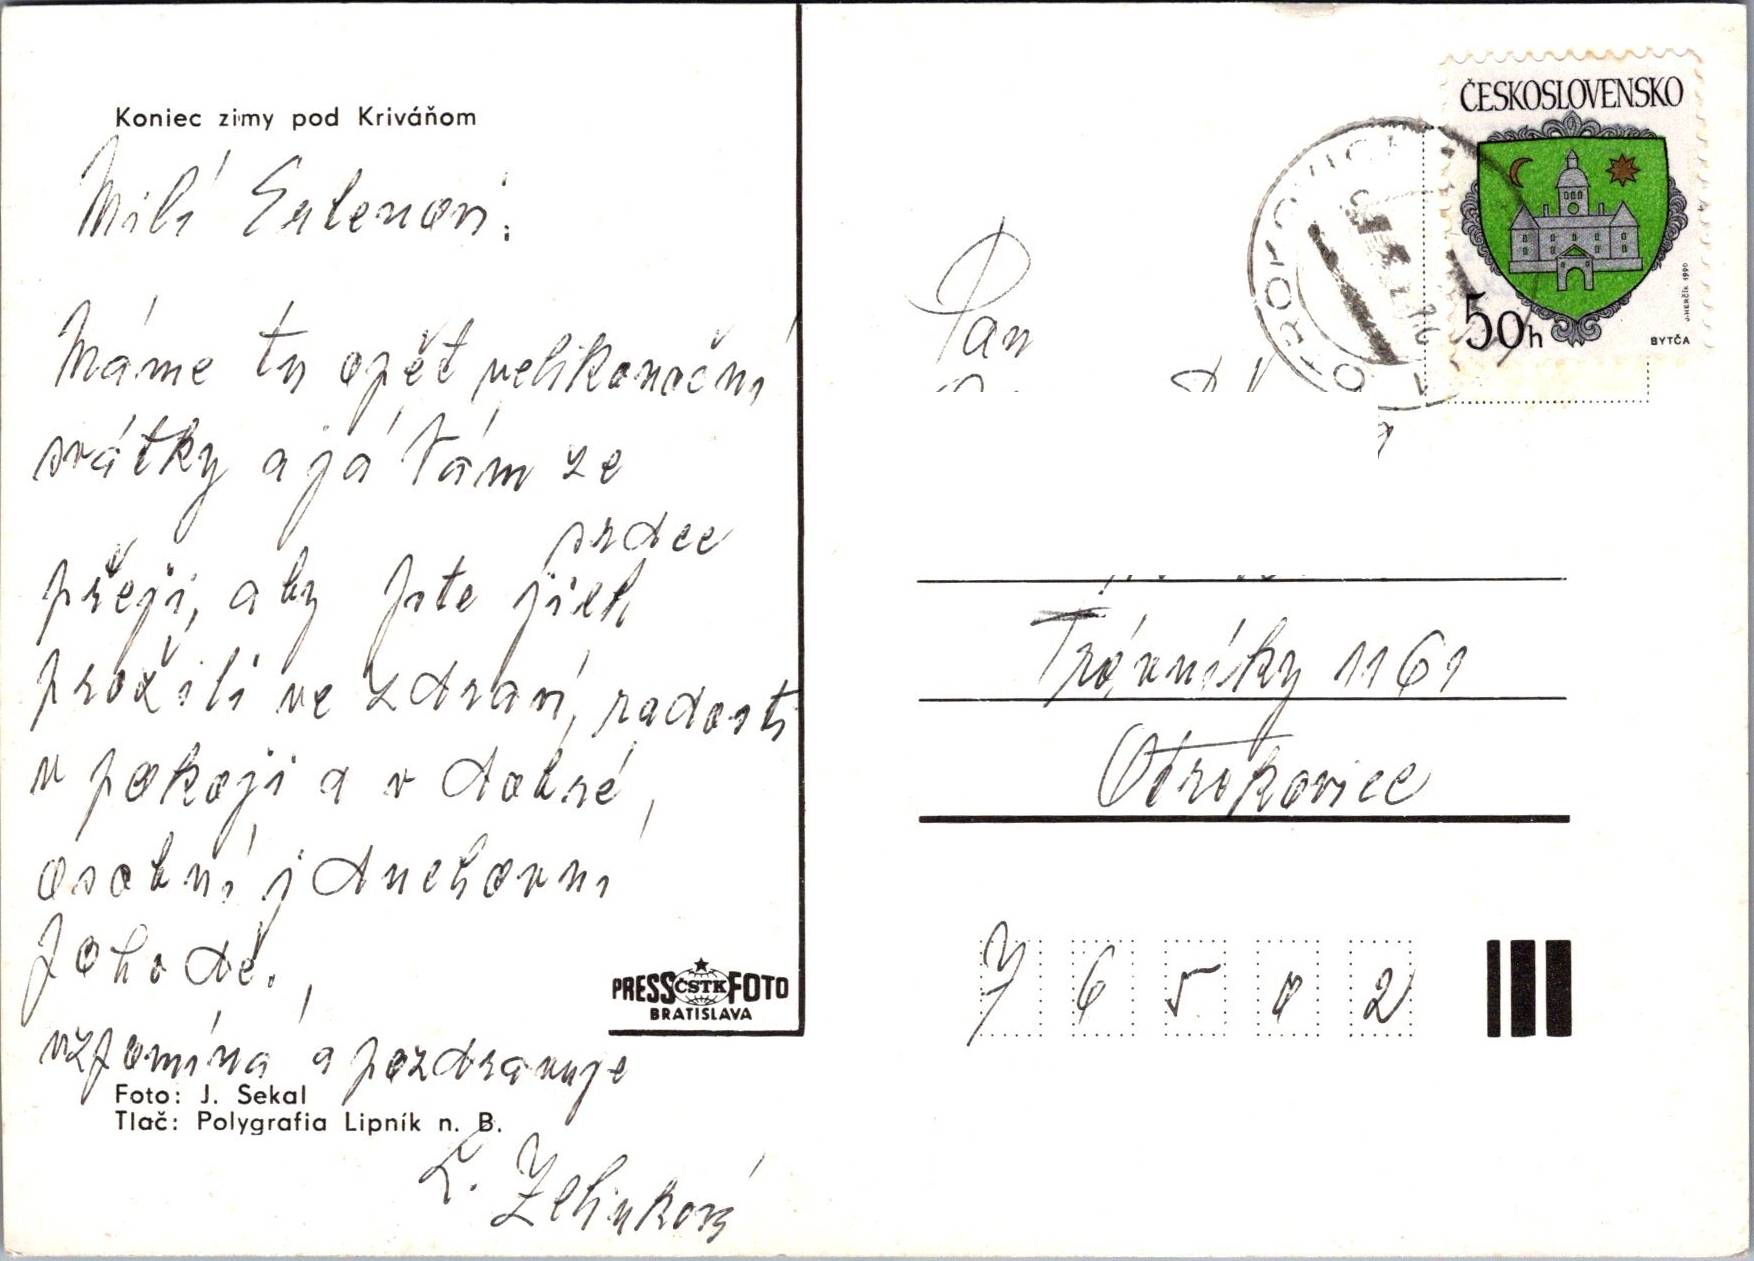 Koniec zimy pod Kriváňom
Milí
Máme tu opět velikonoční
svátky a já Vám ze
srdce
přeji, aby jste jich
prožili ve zdraví, radosti
v pokoji a v dobré,
osobní j duchovní
pohodě.
vzpomíná a pozdravuje
Foto: J. Sekal
Tlač: Polygrafia Lipník n. B.
L. Zelinková
PRESS ČSTK FOTO
BRATISLAVA
ČESKOSLOVENSKO
50h
BYTČA
J. HERČÍK 1990
OTROKOVICE 1
Pan
Trávníky 1161
Otrokovice
76502